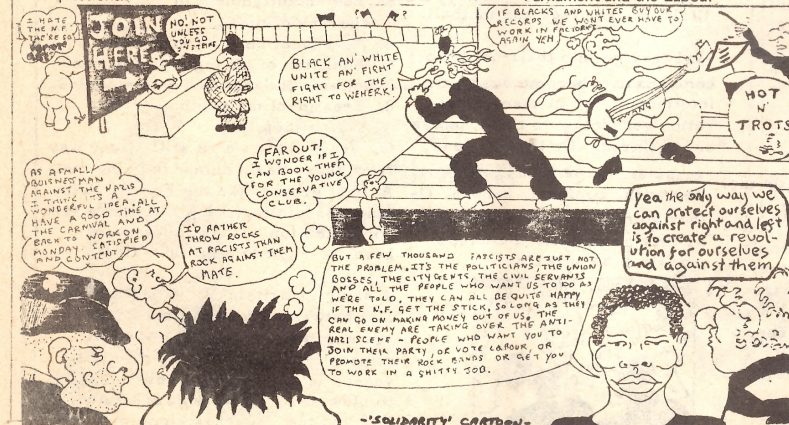 Parliament and the Labour
I HATE
THE N.F.
THE'RE SO
JOIN
HERE
NO! NOT
UNLESS
YOU GO
ON STRIKE
BLACK AN' WHITE
UNITE AN' FIGHT
FIGHT FOR THE
RIGHT TO WEHERK!
IF BLACKS AND WHITES BUY OUR
RECORDS WE WONT EVER HAVE TO
WORK IN FACTORIES
AGAIN YEH
TWANG
HOT
N'
TROTS
AS A SMALL
BUISNESS MAN
AGAINST THE NAZIS
I THINK IT'S A
WONDERFUL IDEA. ALL
HAVE A GOOD TIME AT
THE CARNIVAL AND
BACK TO WORK ON
MONDAY. SATISFIED
AND CONTENT
FAR OUT!
I WONDER IF I
CAN BOOK THEM
FOR THE YOUNG
CONSERVATIVE
CLUB.
I'D RATHER
THROW ROCKS
AT RACISTS THAN
ROCK AGAINST THEM
MATE.
BUT A FEW THOUSAND FASCISTS ARE JUST NOT
THE PROBLEM. IT'S THE POLITICIANS, THE UNION
BOSSES, THE CITY GENTS, THE CIVIL SERVANTS
AND ALL THE PEOPLE WHO WANT US TO DO AS
WE'RE TOLD. THEY CAN ALL BE QUITE HAPPY
IF THE N.F. GET THE STICK, SO LONG AS THEY
CAN GO ON MAKING MONEY OUT OF US. THE
REAL ENEMY ARE TAKING OVER THE ANTI-
NAZI SCENE - PEOPLE WHO WANT YOU TO
JOIN THEIR PARTY, OR VOTE LABOUR, OR
PROMOTE THEIR ROCK BANDS OR GET YOU
TO WORK IN A SHITTY JOB.
Yea the only way we
can protect ourselves
against right and left
is to create a revol-
ution for ourselves
and against them
-'SOLIDARITY' CARTOON-